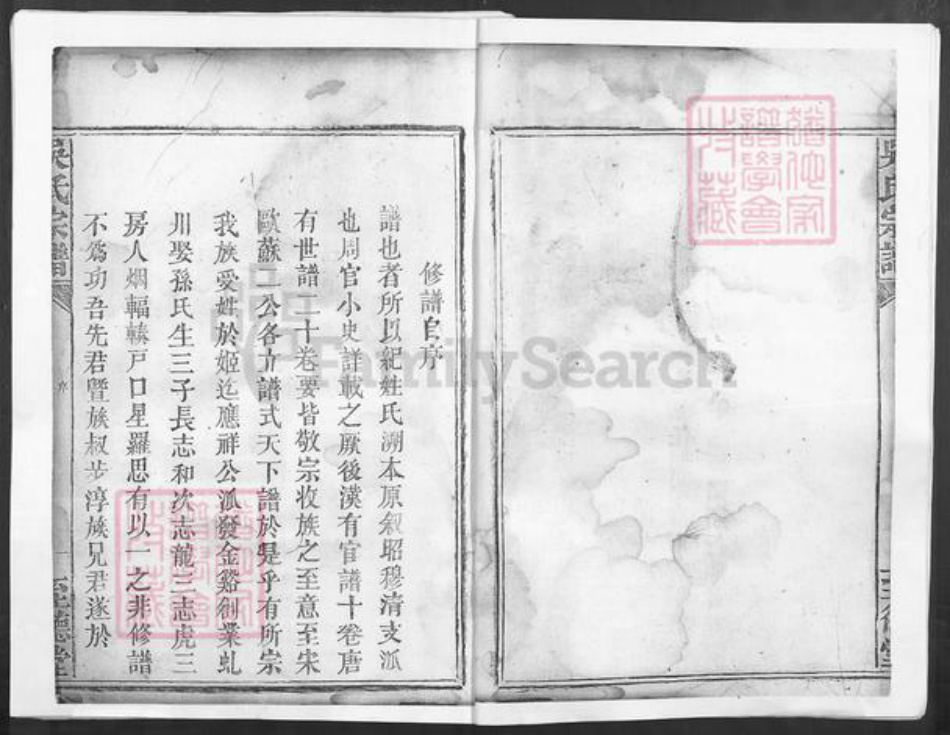 吳氏宗譜
修譜自序
譜也者所以紀姓氏溯本原叙昭穆清支派
也周官小史詳載之厥後漢有官譜十卷唐
有世譜二十卷要皆敬宗收族之至意至宋
歐蘇二公各立譜式天下譜於是乎有所宗
我族受姓於姬迄應祥公派發金谿創業虬
川娶孫氏生三子長志和次志龍三志虎三
房人烟輻輳戶口星羅思有以一之非修譜
不為功吾先君暨族叔步淳族兄君遂於
吳氏宗譜
序
一
至德堂
FamilySearch